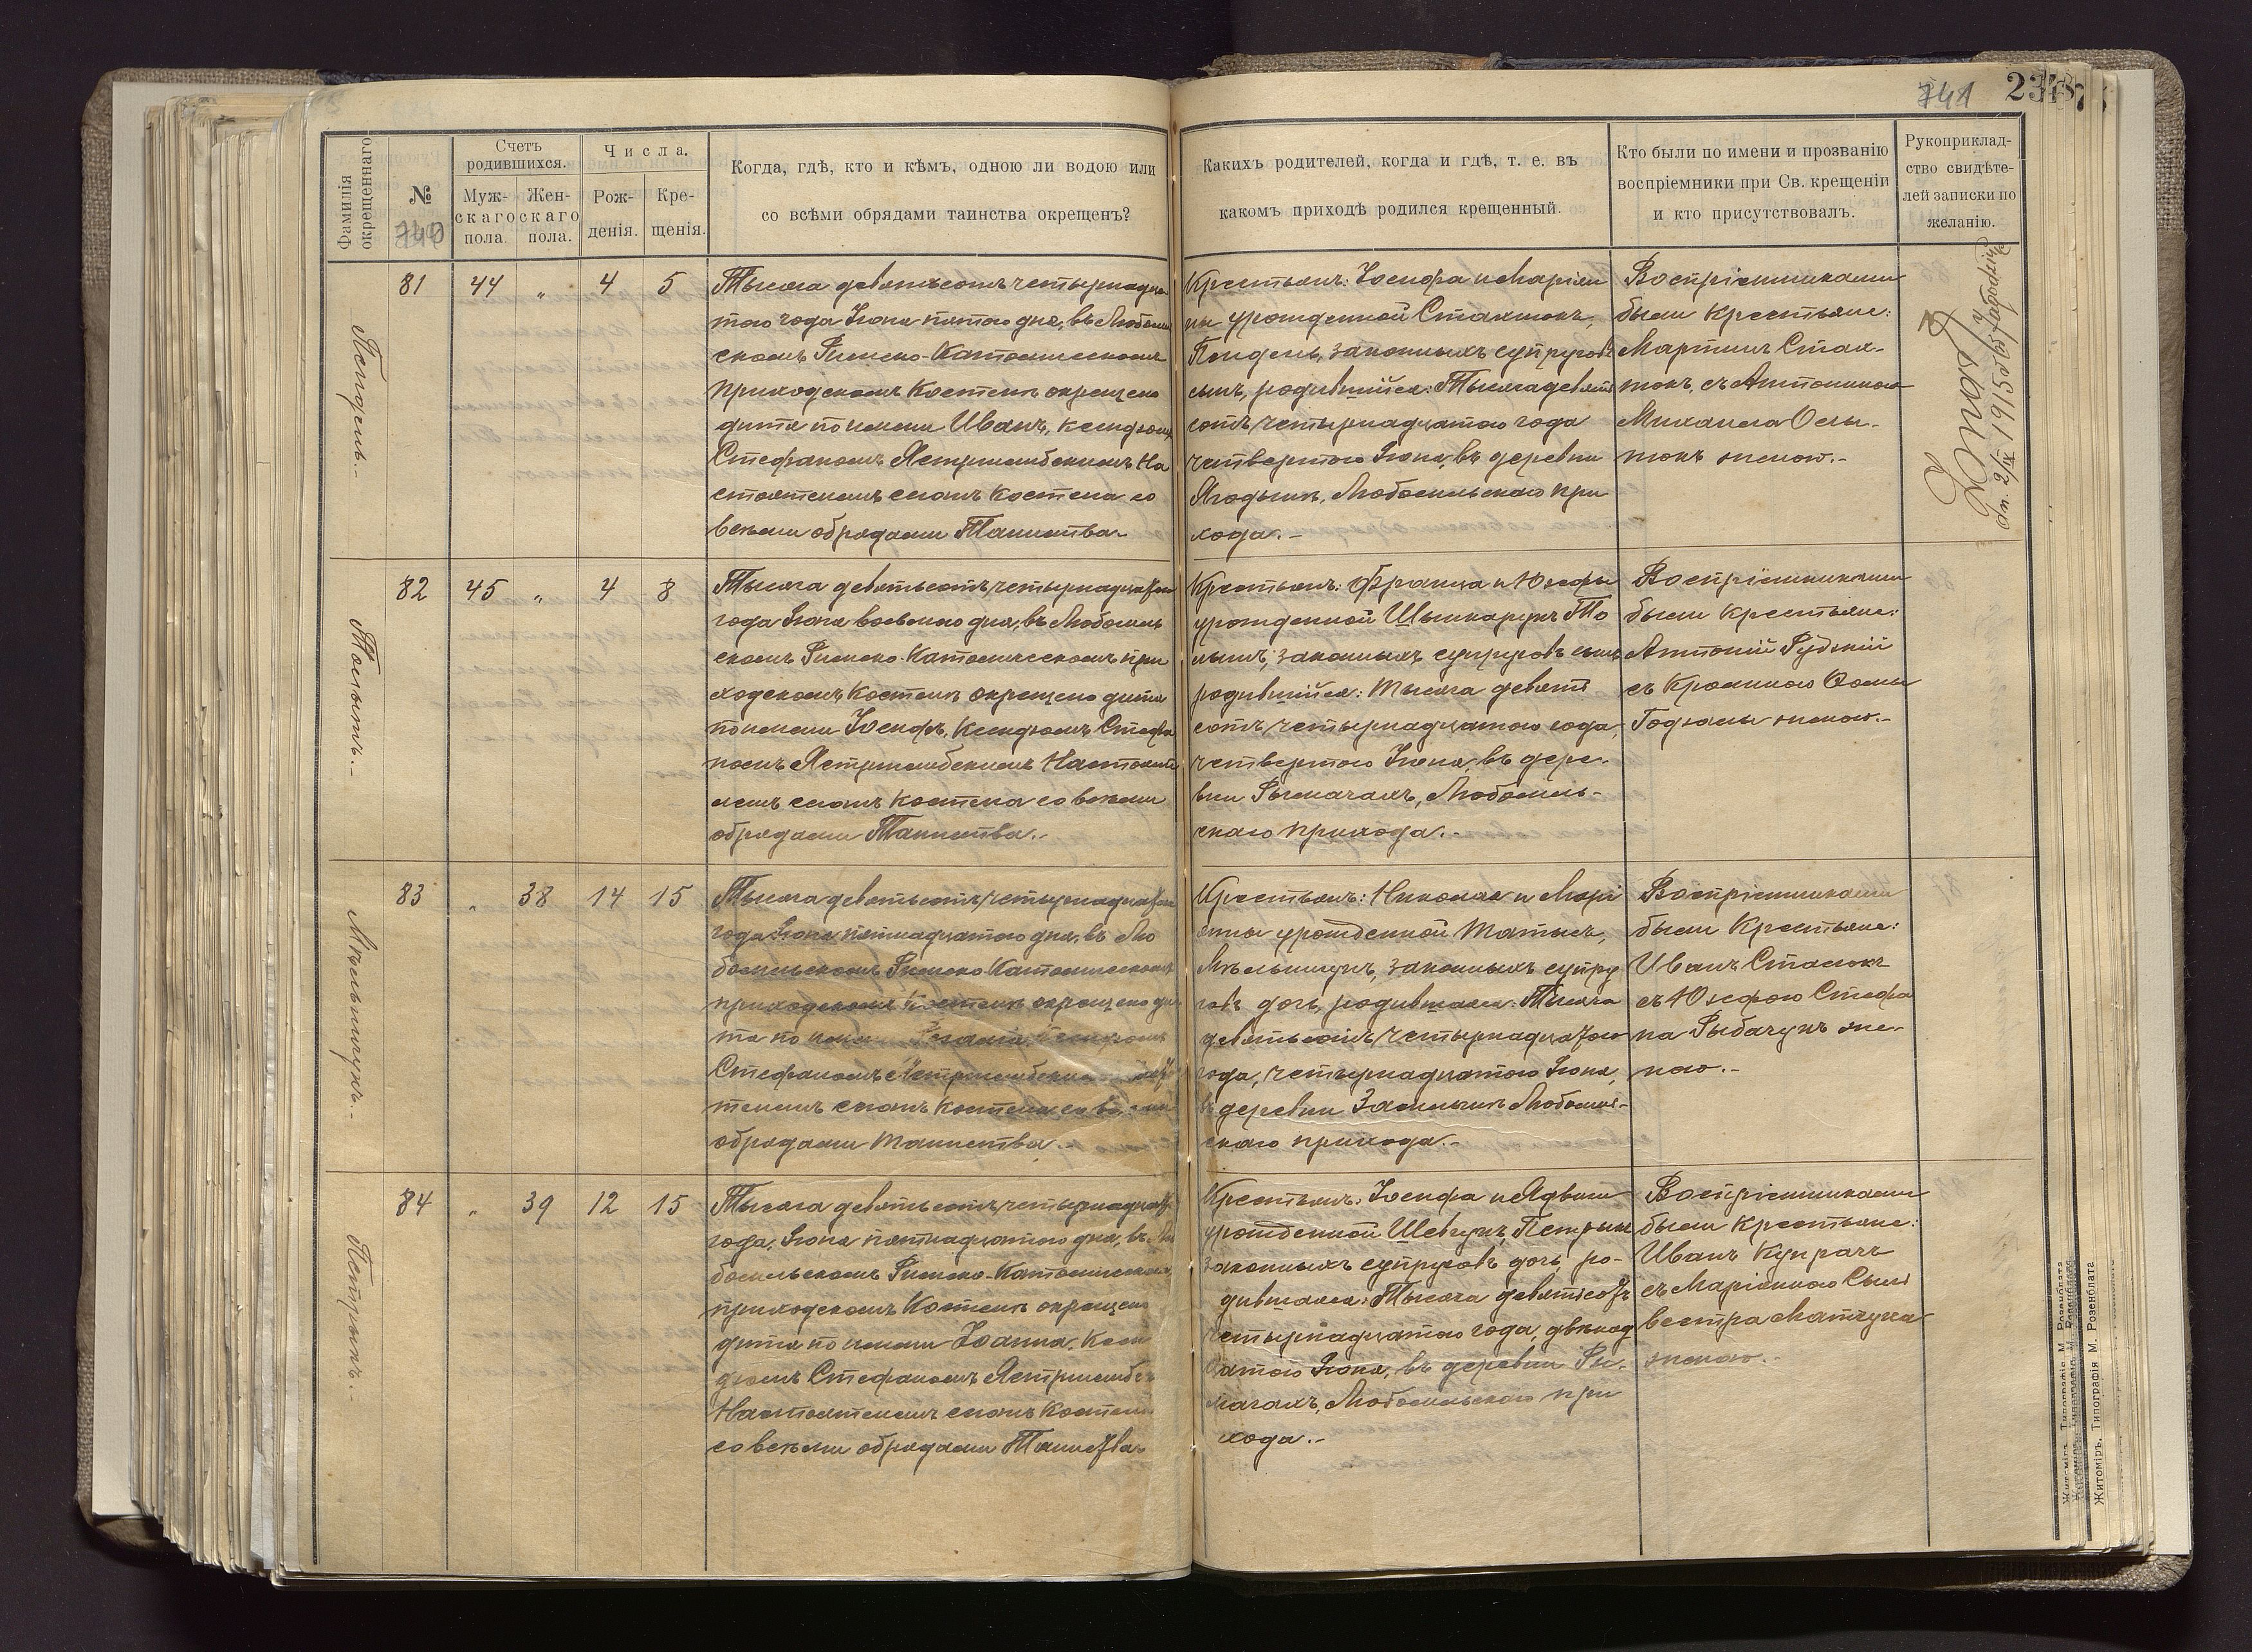 741 234
Фамилія
окрещеннаго
№
740
Счетъ
родившихся.
Муж-
скаго
пола.
Жен-
скаго
пола.
Числа.
Рож-
денія.
Кре-
щенія.
Когда, гдѣ, кто и кѣмъ, одною ли водою или
со всѣми обрядами таинства окрещенъ?
Какихъ родителей, когда и гдѣ, т. е. въ
какомъ приходѣ родился крещенный.
Кто были по имени и прозванію
воспріемники при Св. крещеніи
и кто присутствовалъ.
Рукоприклад-
ство свидѣте-
лей записки по
желанію.
Пендель.-
81 44 „ 4 5
Тысяча девятьсотъ четырнадца-
таго года Іюня пятаго дня, въ Любомль
скомъ Римско-Католическомъ
приходскомъ Костелѣ окрещено
дитя по имени Иванъ, Ксендзомъ
Стефаномъ Ястржембскимъ На
стоятелемъ сего Костела со
всѣми обрядами Таинства.-
Крестьянъ: Іосифа и Маріан
ны урожденной Стахнюкъ,
Пендель, законныхъ супруговъ
сынъ, родившійся: Тысяча девять
сотъ четырнадцатаго года
четвертаго Іюня, въ деревни
Ягодынѣ, Любомльскаго при
хода.-
Воспріемниками
были Крестьяне:
Мартинъ Стах-
нюкъ, съ Антониною
Михаила
женою.-
Zmarł
dn. 2/IX 1915
Толытъ.-
82 45 „ 4 8
Тысяча девятьсотъ четырнадцатаго
года Іюня восьмого дня, въ Любомль
скомъ Римско-Католическомъ при
ходскомъ Костелѣ окрещено дитя
по имени Іосифъ, Ксендзомъ Стефа
номъ Ястржембскимъ Настояте
лемъ сего Костела со всѣми
обрядами Таинства.-
Крестьянъ: Франца и Юзефы
урожденной Шинкарукъ То
лытъ, законныхъ супруговъ сынъ
родившійся: Тысяча девять
сотъ четырнадцатаго года,
четвертаго Іюня, въ дере-
вни Рымачахъ, Любомль-
скаго прихода.-
Воспріемниками
были Крестьяне:
Антоній Рудскій
съ Ѳомы
женою.-
Мѣльничукъ.-
83 „ 38 14 15
Тысяча девятьсотъ четырнадцатаго
года Іюня пятнадцатаго дня, въ Лю
бомльскомъ Римско-Католическомъ
приходскомъ Костелѣ окрещено ди
тя по имени
Стефаномъ Ястржембскимъ
телемъ сего Костела со всѣми
обрядами Таинства.-
Крестьянъ: Николая и Марі
анны урожденной
Мѣльничукъ, законныхъ супру
говъ дочь, родившаяся: Тысяча
девятьсотъ четырнадцатаго
года, четырнадцатаго Іюня,
въ деревни Любомль-
скаго прихода.-
Воспріемниками
были Крестьяне:
Иванъ
съ Юзефою Стефа
на Рыбачукъ же-
ною.-
Петрыкъ.-
84 „ 39 12 15
Тысяча девятьсотъ четырнадцатаго
года, Іюня пятнадцатаго дня, въ Лю
бомльскомъ Римско-Католическомъ
приходскомъ Костелѣ окрещено
дитя по имени Іоанна, Ксен
дзомъ Стефаномъ Ястржембск
Настоятелемъ сего Костела
со всѣми обрядами Таинства.
Крестьянъ: Іосифа и Ядвиги
урожденной Шевчукъ, Петрыкъ
законныхъ супруговъ дочь, ро-
дившаяся: Тысяча девятьсотъ
четырнадцатаго года, двѣнад
цатаго Іюня, въ деревни Ры-
мачахъ, Любомльскаго при
хода.-
Воспріемниками
были Крестьяне:
Иванъ Купрачъ
съ Маріанною Силь
вестра
женою.-
Житоміръ, Типографія М. Розенблата
Житоміръ, Типографія М. Розенблата